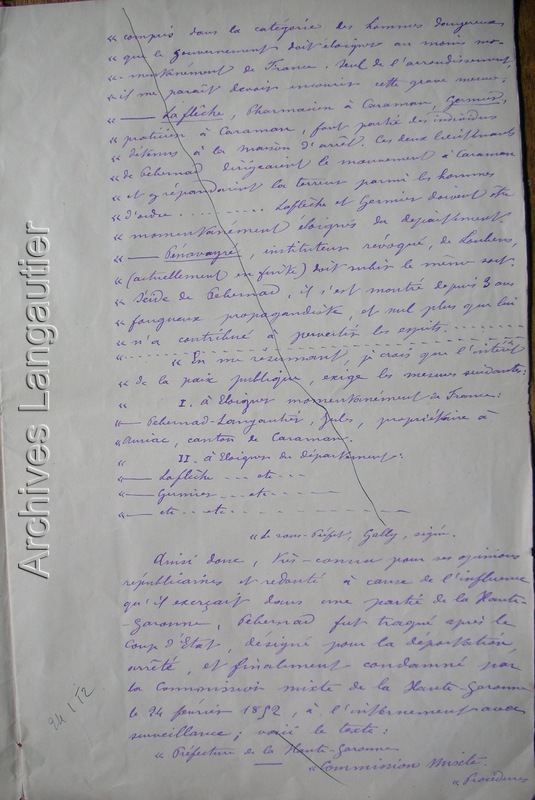 « compris dans la catégorie des hommes dangereux
« que le gouvernement doit éloigner au moins mo-
« -mentanément de France. Seul de l'arrondissement,
« il me paraît devoir encourir cette grave mesure;
« — Laflèche, Pharmacien à Caraman, Germier,
« praticien à Caraman, font partie des individus
« détenus à la maison d'arrêt. Ces deux lieutenants
« de Pebernad dirigeaient le mouvement à Caraman
« et y répandaient la terreur parmi les hommes
« d'ordre .......... Laflèche et Germier doivent être
« momentanément éloignés du département
« — Pénavayré, instituteur révoqué, de Loubens,
« (actuellement en fuite) doit subir le même sort.
« Séide de Pebernad, il s'est montré depuis 3 ans
« fougueux propagandiste, et nul plus que lui
« n'a contribué à pervertir les esprits. ..........
« ..........
« "En me résumant, je crois que l'intérêt
« de la paix publique, exige les mesures suivantes:
« I. à Eloigner momentanément de France:
« — Pebernad-Langautier, Jules, propriétaire à
« Auriac, canton de Caraman.
« II. à Eloigner du département:
« — Laflèche --- etc ---
« — Germier --- etc ---
« — etc --- etc ---
« Le sous-Préfet, Gally, signé.
Ainsi donc, très-connu pour ses opinions
républicaines et redouté à cause de l'influence
qu'il exerçait dans une partie de la Haute-
-Garonne, Pebernad fut traqué après le
Coup d'Etat, désigné pour la déportation,
arrêté, et finalement condamné par
la Commission mixte de la Haute-Garonne
le 24 février 1852, à l'internement avec
surveillance; voici le texte:
« Préfecture de la Haute-Garonne
« Commission Mixte.
« Procédures
Archives Langautier